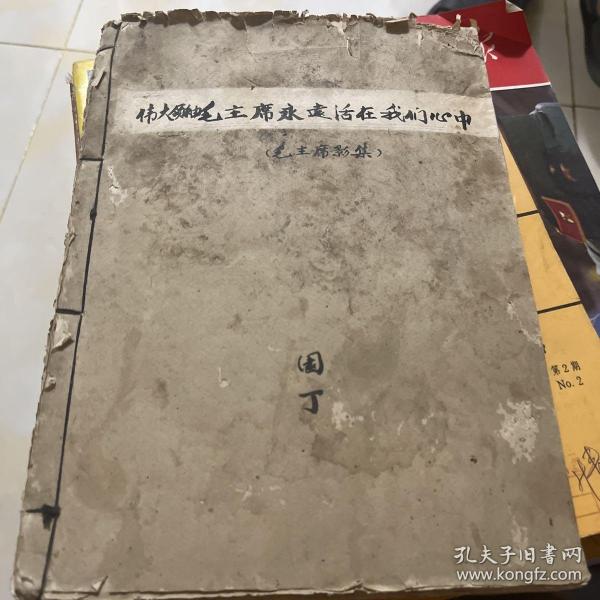 伟大领袖毛主席永远活在我们心中
(毛主席影集)
园
丁
第2期
No.2
孔夫子旧书网
www.kongfz.com